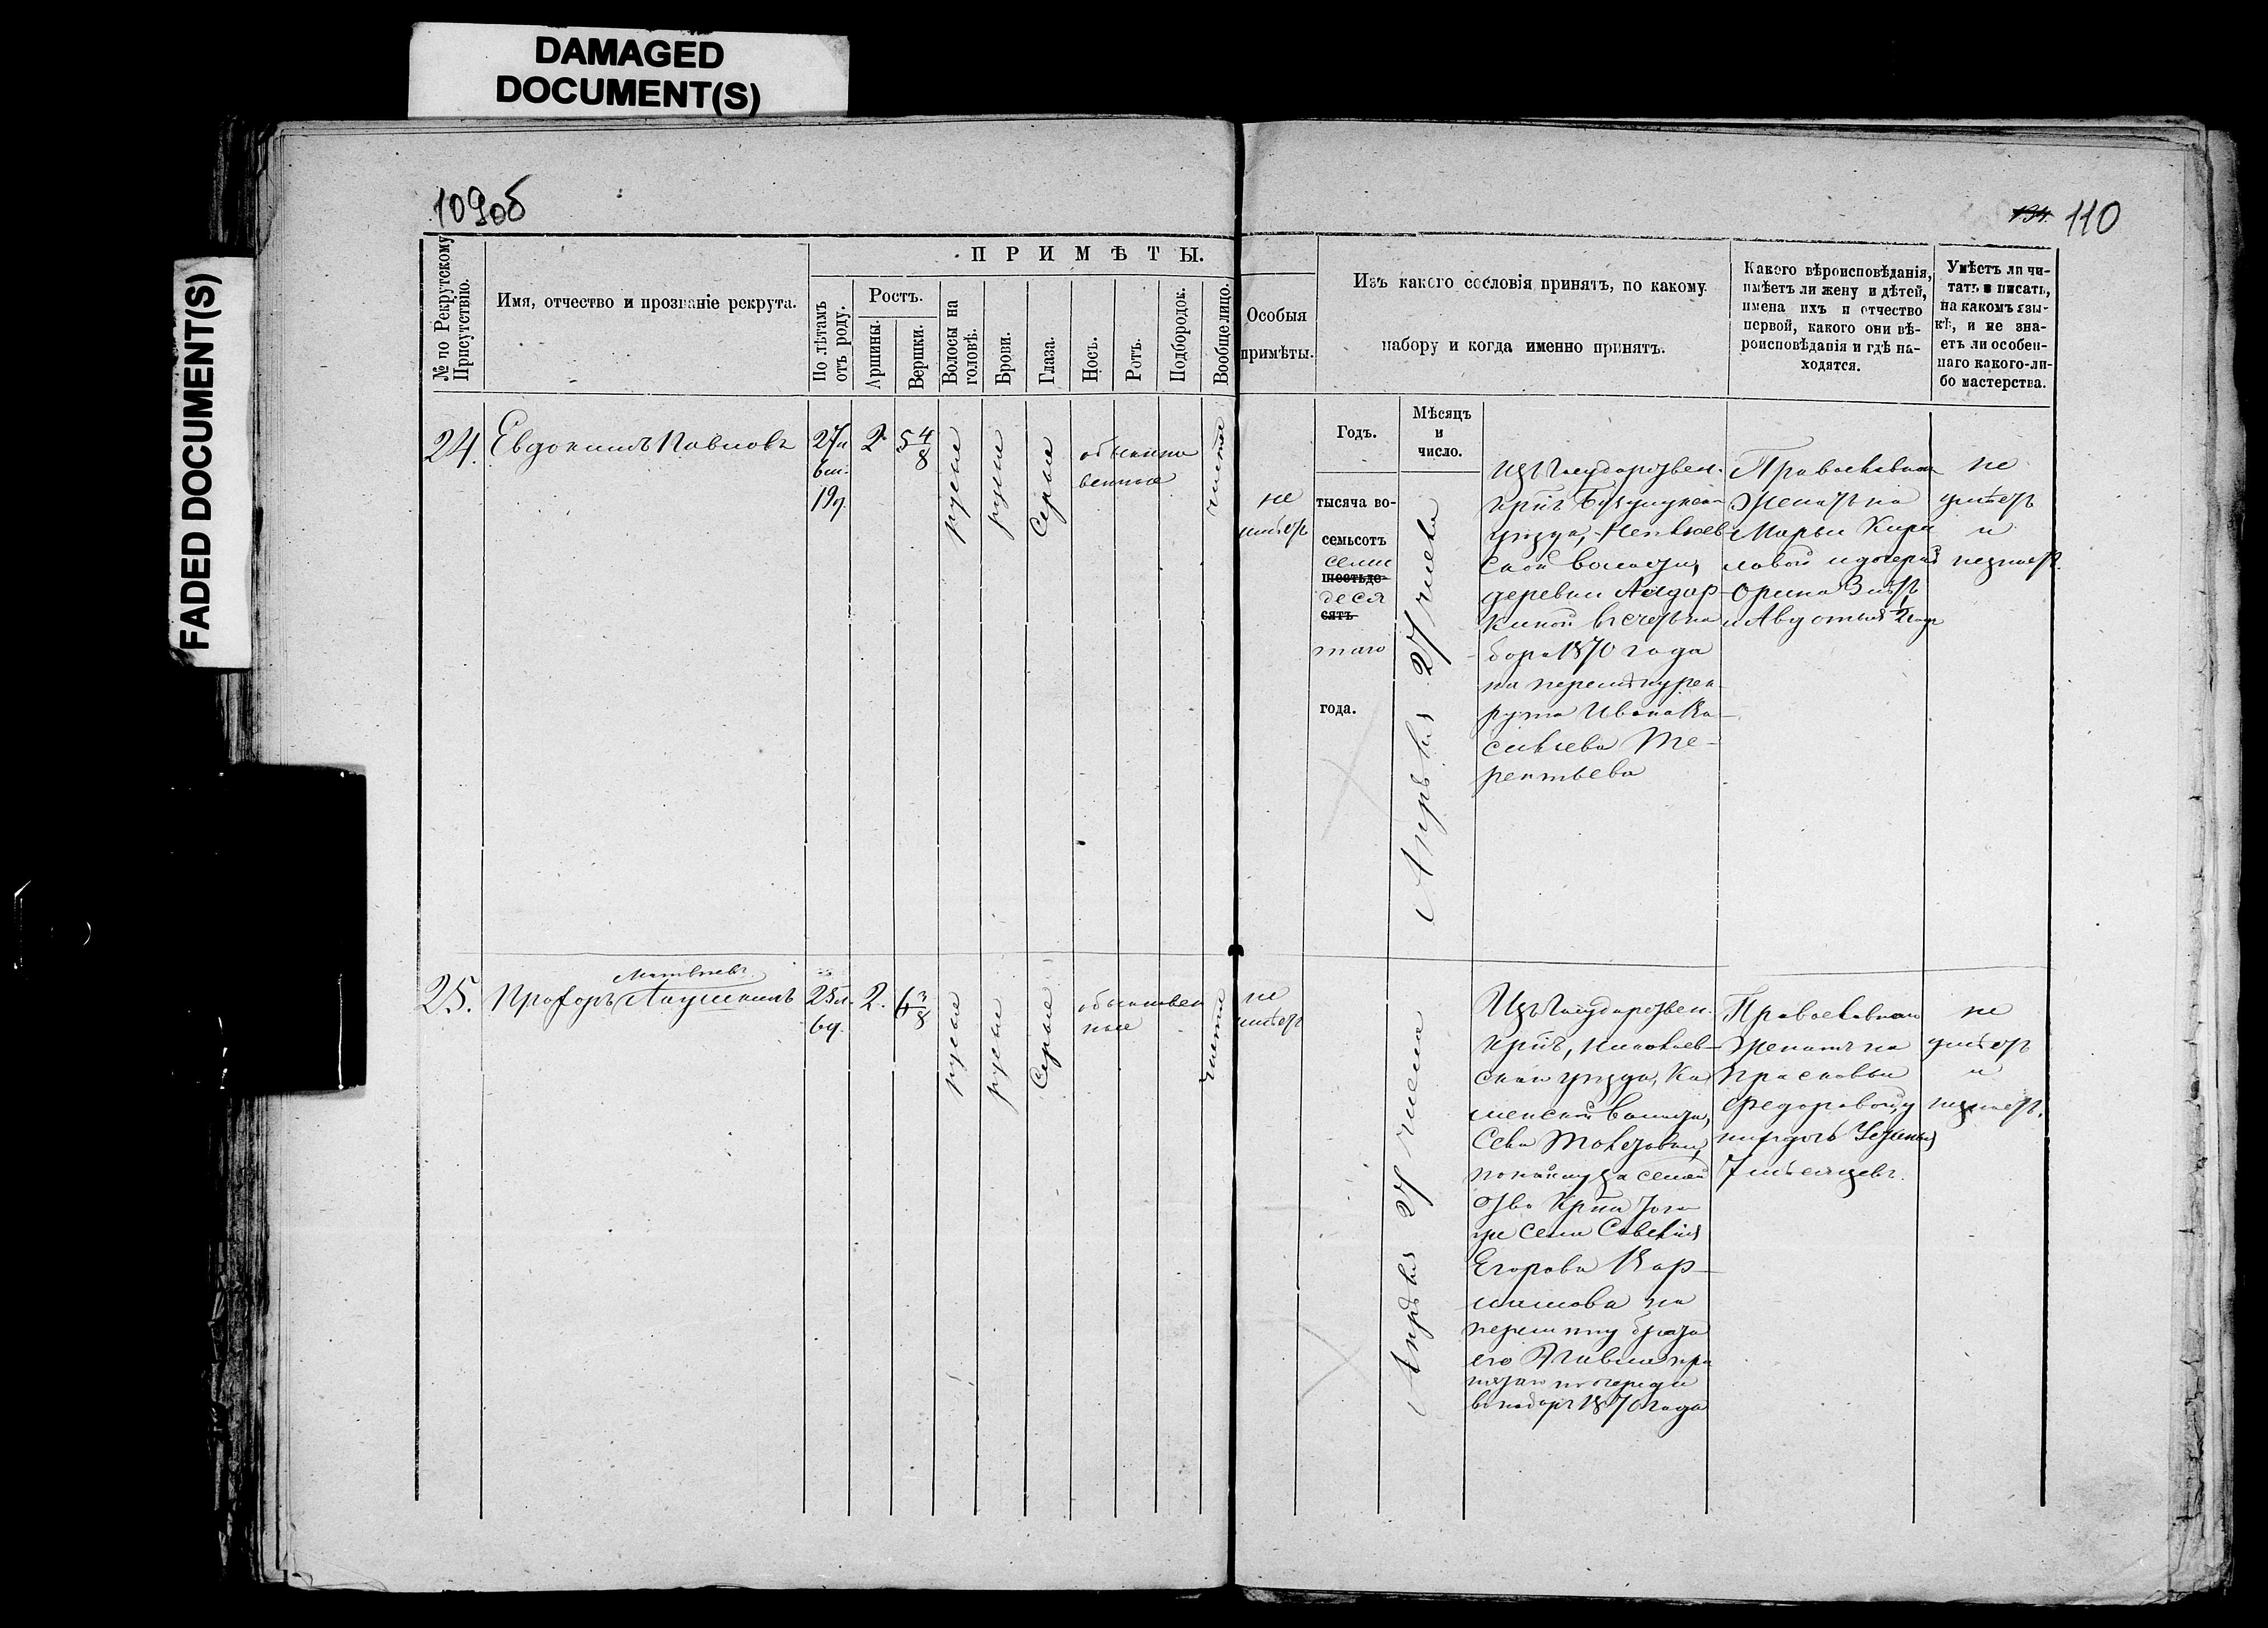 DAMAGED
DOCUMENT(S)
FADED DOCUMENT(S)
109об
134. 110
№ по Рекрутскому
Присутствію.
Имя, отчество и прозваніе рекрута.
ПРИМѢТЫ.
По лѣтамъ
отъ роду.
Ростъ.
Аршины.
Вершки.
Волосы на
головѣ.
Брови.
Глаза.
Носъ.
Ротъ.
Подбородок.
Вообще лицо.
Особыя
примѣты.
Изъ какого сословія принятъ, по какому
набору и когда именно принятъ.
Какого вѣроисповѣданія,
имѣетъ ли жену и дѣтей,
имена ихъ и отчество
первой, какого они вѣ-
роисповѣданія и гдѣ на-
ходятся.
Умѣетъ ли чи-
тать и писать,
на какомъ язы-
кѣ, и не зна-
етъ ли особен-
наго какого-ли-
бо мастерства.
Годъ.
Мѣсяцъ
и
число.
24.
Евдокимъ Павловъ
27л
6м.
19д.
2
5 4/8
русые
русые
Серые
обыкно
венные
чистое
не
имѣетъ
тысяча во-
семьсотъ
семи
шестьде-
деся
сятъ
таго
года.
Апрѣля 27 числа
Изъ Государствен.
крнъ
уѣзда,
ской волости,
деревни
киной въ счетъ на
бора 1870 года
на перемѣну рек
рута Ивана Ва
сильева Те-
рентьева
Православнаго
Женатъ на
Марьи Кири
ловой и дочери
Орина 3 лѣтъ
и Авдотья 1/2 года
не
умѣетъ
и
незнаетъ.
25.
Матвѣевъ
Прохоръ Лаушкинъ
25л.
6д.
2.
6 3/8
русые
русые
Серые
обыкновен
ные
чистое
не
имѣетъ
Апрѣля 27 числа
Изъ Государствен.
крнъ, николаев-
скаго уѣзда, Ка
менской волости,
Села
по найму за семей
ство Крна того
же села Савелія
Егорова Кар-
машова на
перемѣну брата
его Павла при
нятаго по очереди
въ наборъ 1870 года
Православнаго
женатъ на
Прасковьи
Федоровой, у
нихъ дочь
7 мѣсяцевъ.
не
умѣетъ
и
незнаетъ.